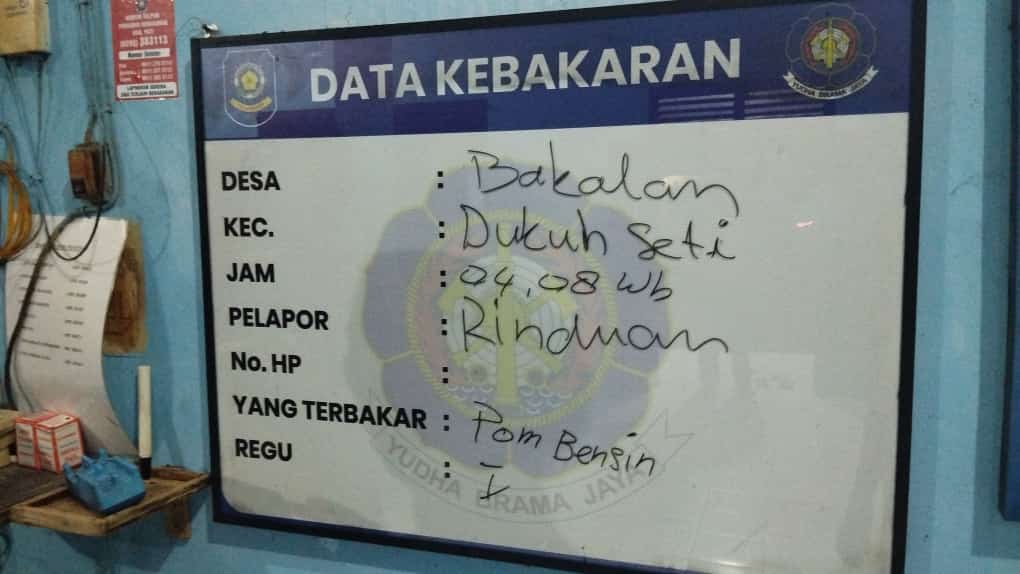 DATA KEBAKARAN
YUDHA BRAMA JAYA
DESA : Bakalan
KEC. : Dukuh Seti
JAM : 04,08 Wb
PELAPOR : Rinduan
No. HP :
YANG TERBAKAR : Pom Bensin
REGU : I
YUDHA BRAMA JAYA
(0295) 383113